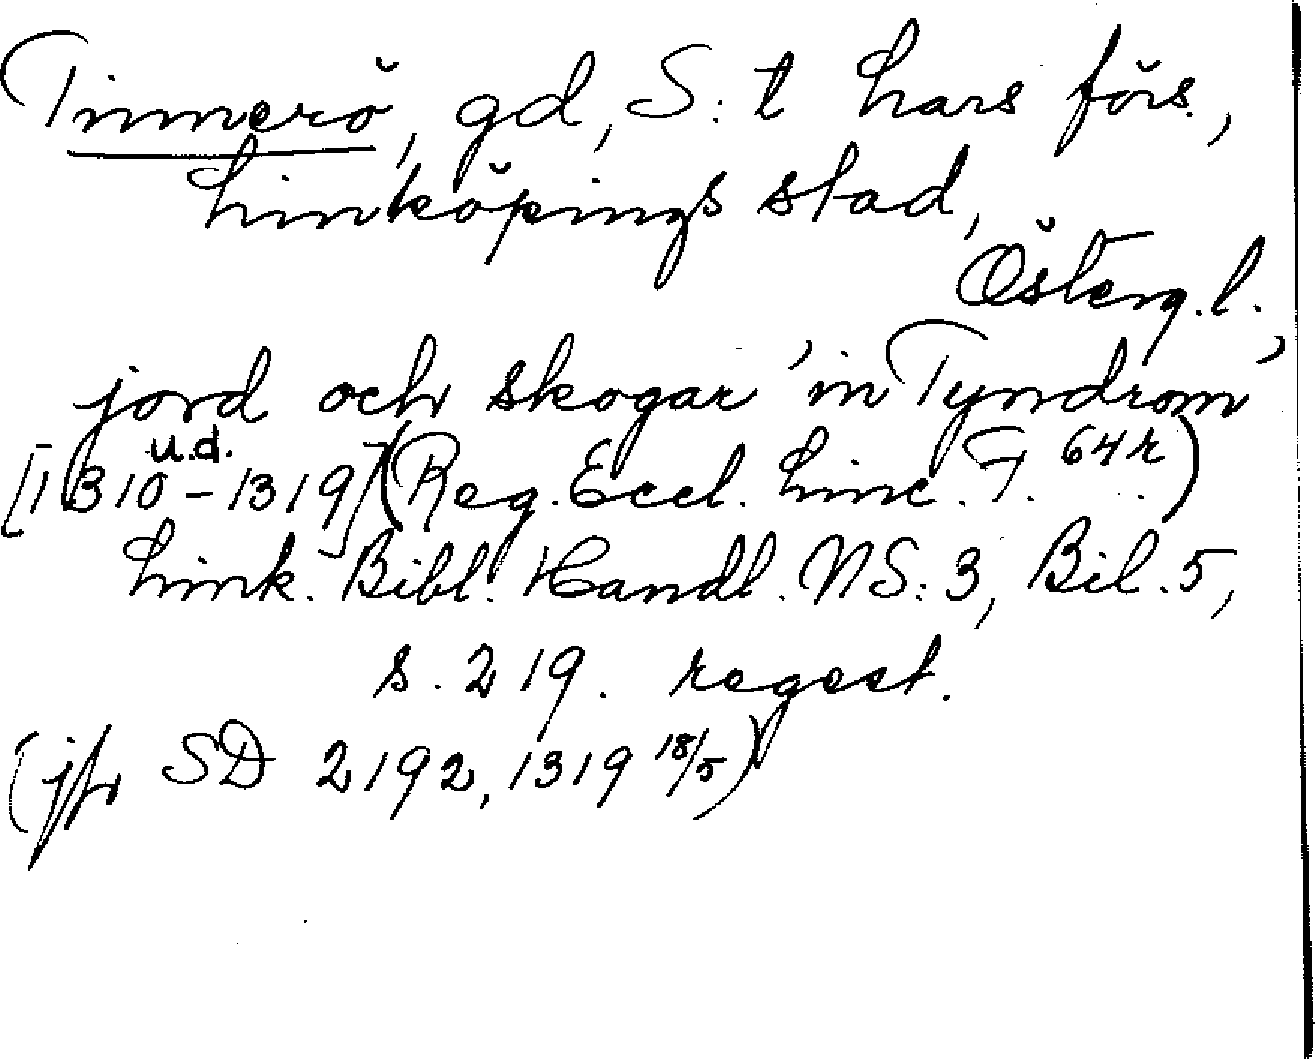 Tinnerö, gd, S:t Lars förs.,
Linköpings stad,
Österg.l.
jord och skogar 'in Tyndrom'
u.d.
[1310-1319] (Reg. Eccl. Linc. F. 64r)
Link. Bibl. Handl. NS: 3, Bil. 5,
s. 219. regest.
(jfr SD 2192, 1319 18/5)